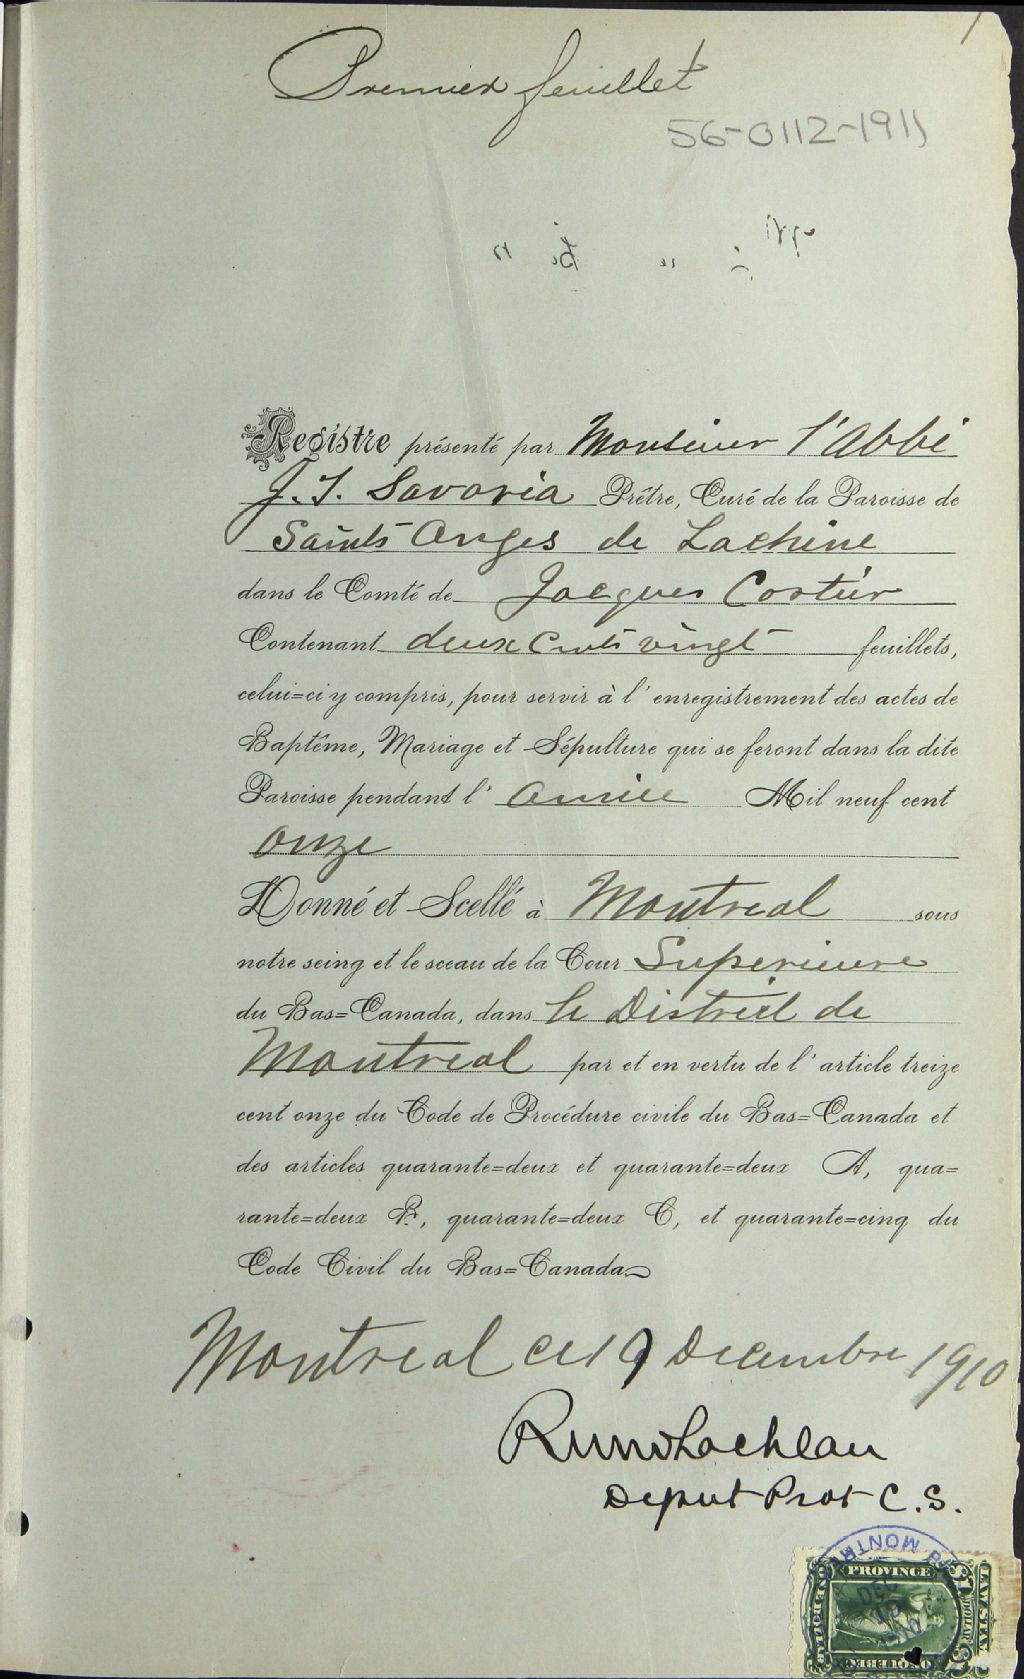 Premier feuillet
56-0112-1911
Registre présenté par Monsieur l'Abbé
Savaria Prêtre, Curé de la Paroisse de
Saints Anges de Lachine
dans le Comté de Jacques Cartier
Contenant deux cents vingt feuillets,
celui=ci y compris, pour servir à l'enregistrement des actes de
Baptême, Mariage et Sépulture qui se feront dans la dite
Paroisse pendant l'année Mil neuf cent
onze
Donné et Scellé à Montreal sous
notre seing et le sceau de la Cour Superieure
du Bas=Canada, dans le District de
Montreal par et en vertu de l'article treize
cent onze du Code de Procédure civile du Bas=Canada et
des articles quarante=deux et quarante=deux A, qua=
rante=deux B, quarante=deux C, et quarante=cinq du
Code Civil du Bas=Canada
Montreal ce 19 Decembre 1910
Deput Prot C.S.
MONTR
PROVINCE
QUEBEC
ONE DOLLAR
LAW STAM
$1 DOLLAR $1
DEC